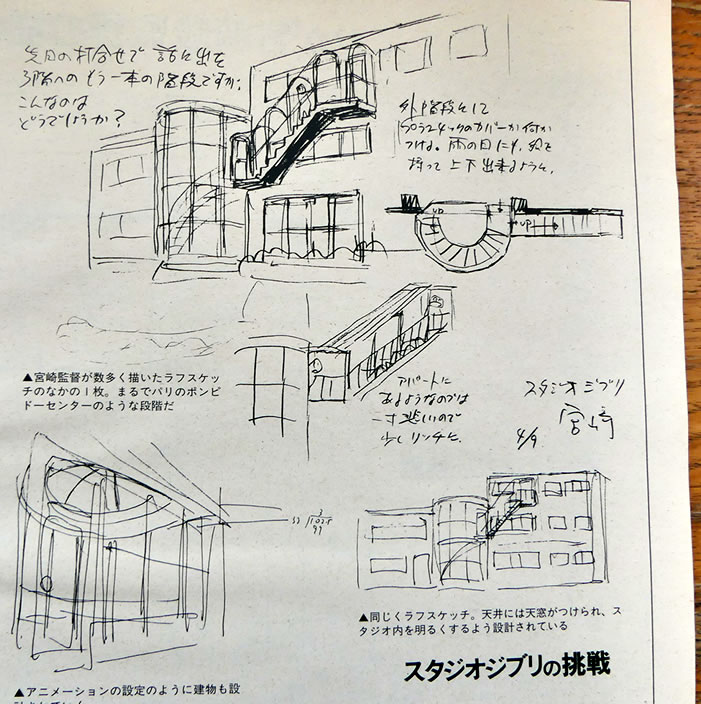 先日の打合せで 話に出た
3階への もう一本の階段ですが、
こんなのは
どうでしょうか？
外階段にして
プラスチックのカバーか何か
つける。雨の日にも、絵を
持って上下出来るように。
UP
UP
▲宮崎監督が数多く描いたラフスケッ
チのなかの１枚。まるでパリのポンピ
ドーセンターのような段階だ
アパートに
あるようなのでは
一寸悲しいので
少しリッチに。
スタジオジブリ
宮崎
4/9
▲同じくラフスケッチ。天井には天窓がつけられ、ス
タジオ内を明るくするよう設計されている
スタジオジブリの挑戦
▲アニメーションの設定のように建物も設